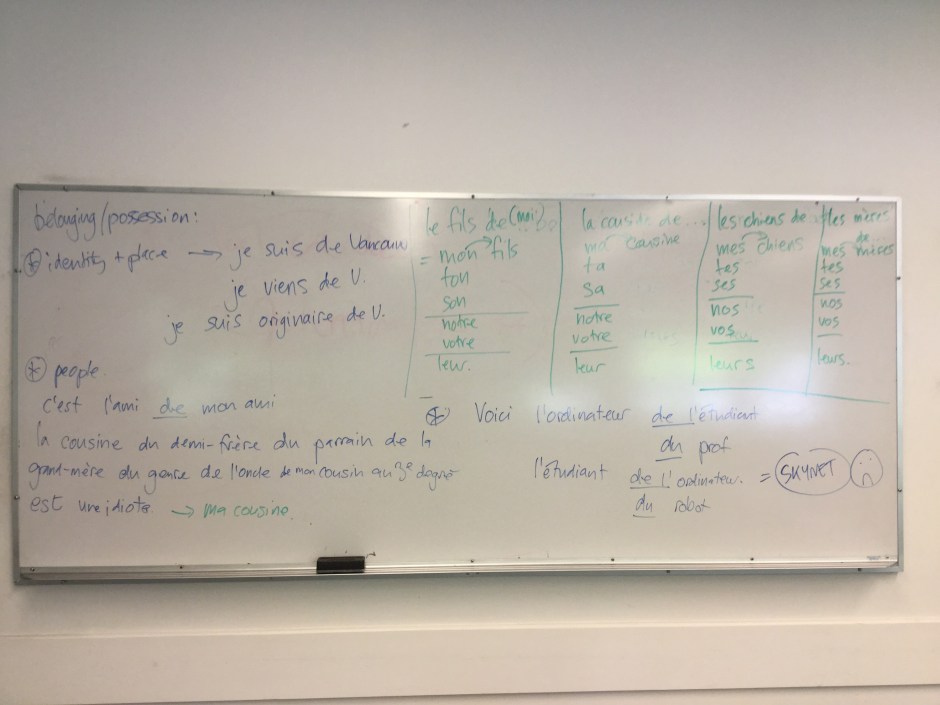 belonging/possession:
* identity + place → je suis de Vancouv
je viens de V.
je suis originaire de V.
* people.
c'est l'ami de mon ami
la cousine du demi-frère du parrain de la
grand-mère du genre de l'oncle de mon cousin au 3e degré
est une idiote → ma cousine.
le fils de (moi)
= mon fils
ton
son
notre
votre
leur.
la cousine de...
ma cousine
ta
sa
notre
votre
leur
les chiens de..
mes chiens
tes
ses
nos
vos
leurs
les mères
de...
mes mères
tes
ses
nos
vos
leurs.
* Voici l'ordinateur de l'étudiant
du prof
l'étudiant de l'ordinateur. = SKYNET
du robot